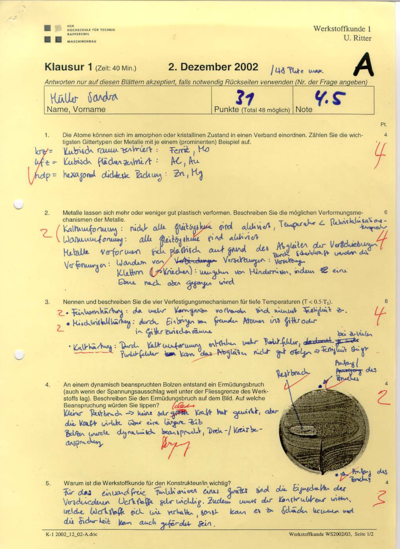 HSR
HOCHSCHULE FÜR TECHNIK
RAPPERSWIL
MASCHINENBAU
Werkstoffkunde I
U. Ritter
Klausur 1 (Zeit: 40 Min.) 2. Dezember 2002
/48 Pkte max
A
Antworten nur auf diesen Blättern akzeptiert, falls notwendig Rückseiten verwenden (Nr. der Frage angeben)
Müller Sandra 31 4.5
Name, Vorname Punkte (Total 48 möglich) Note
Pt.
1. Die Atome können sich im amorphen oder kristallinen Zustand in einem Verband einordnen. Zählen Sie die wich- 4
tigsten Gittertypen der Metalle mit je einem (prominenten) Beispiel auf.
krz = Kubisch raumzentriert: Ferrit, Mo
kfz = Kubisch flächenzentriert: Al, Au
hdp = hexagonal dichteste Packung: Zn, Mg
4
2. Metalle lassen sich mehr oder weniger gut plastisch verformen. Beschreiben Sie die möglichen Verformungsme- 6
chanismen der Metalle.
2 Kaltumformung: nicht alle Gleitsysteme sind aktiviert, Temperatur < Rekristallisations-
temperatur
Warmumformung: alle Gleitsysteme sind aktiviert
4
Metalle verformen sich plastisch auf grund des Abgleiten der Versetzungen
Verformungen: Wandern von Versetzungen:
Klettern (Kriechen): umgehen von Hindernissen, indem
Ebene nach oben gegangen wird
3. Nennen und beschreiben Sie die vier Verfestigungsmechanismen für tiefe Temperaturen (T < 0.5 Ts). 8
2 Feinkornhärtung: da mehr Korngrenzen vorhanden sind nimmt Festigkeit zu.
4
2 Mischkristallhärtung: durch Einbringen von fremden Atomen ins Gitter oder
in Gitterzwischenräume
Kalthärtung: Durch Kaltumformung entstehen mehr Punktfehler,
Punktfehler kann das Abgleiten nicht gut erfolgen → Festigkeit steigt
4. An einem dynamisch beanspruchten Bolzen entstand ein Ermüdungsbruch 4
(auch wenn der Spannungsausschlag weit unter der Fliessgrenze des Werk-
stoffs lag). Beschreiben Sie den Ermüdungsbruch auf dem Bild. Auf welche
Beanspruchung würden Sie tippen?
Restbruch
Anfang des
Bruches
2
kleine Restbruch → keine sehr grosse Kraft hat gewirkt, aber
die Kraft wirkte über eine längere Zeit
Bolzen wurde dynamisch beansprucht, Dreh-/Kreisbe-
anspruchung
Anfang des
Bruches
5. Warum ist die Werkstoffkunde für den Konstrukteur/in wichtig? 4
Für das einwandfreie Funktionieren eines Gerätes sind die Eigenschaften der
verschiedenen Werkstoffe sehr wichtig. Zudem muss der Konstrukteur wissen,
3
welche Werkstoffe sich wie verhalten, sonst kann es zu Schäden kommen und
die Sicherheit kann auch gefährdet sein.
K-1 2002_12_02-A.doc Werkstoffkunde WS2002/03, Seite 1/2